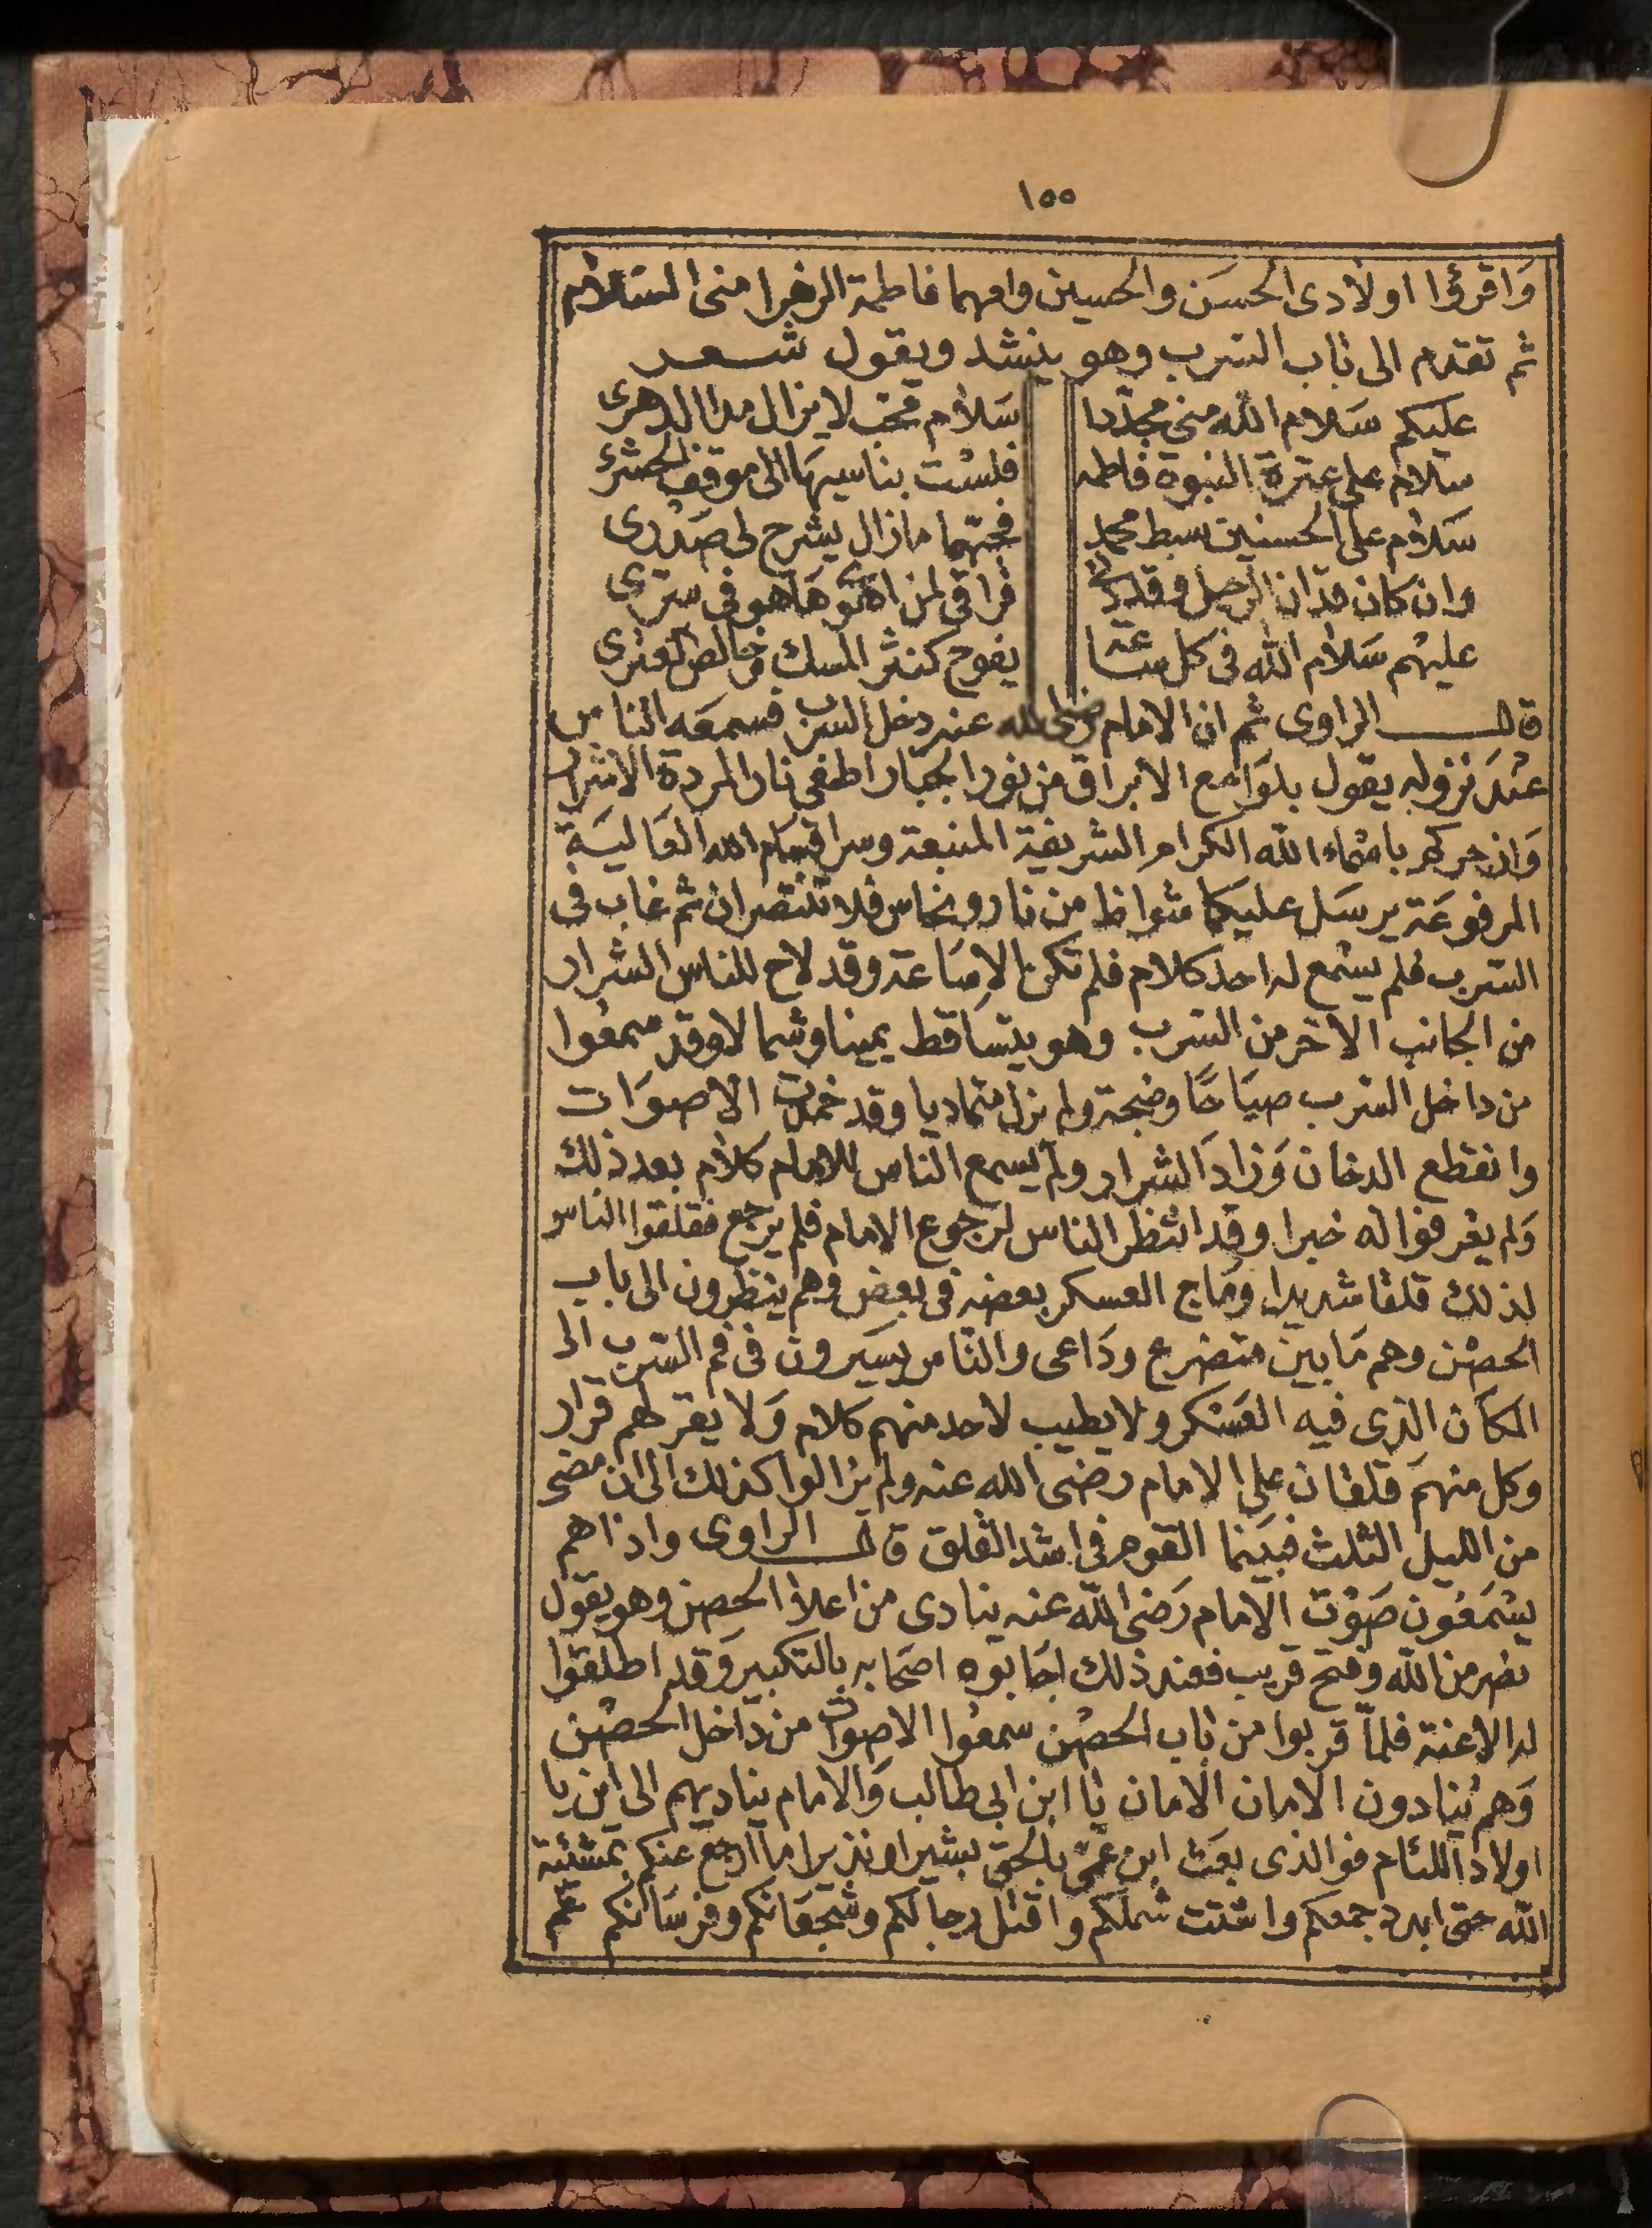 ١٥٥
وَاقرؤا اولادى الحسَن والحسين وامهما فاطمة الزهرا منى السَلام
ثم تقدم الى بَاب السرب وهو ينشد ويقول شـــعـــر
عليكم سَلام الله منى مجدّدا سَلام محب لا يزال مدا الدهرى
سلام على عترة النبوة فاطمه فلسْت بناسيهَا الى موقف الحشرى
سَلام على الحسنين سبط محمد فحبّهما مازال يشرح لى صَدْرى
وان كان قدان الرحيل وقددنا فراقى لمن اهوٰى هَاهو فى سترى
عليهم سَلام الله فى كل ساعَة يفوح كنشر المسك وخالص العنبرى
قالــــ الراوى ثم ان الامام رضى الله عنه دخل السرب فسمعَه الناس
عنْدَ نزوله يقول بلوَامع الابراق من نور الجبار اطفى نار المردة الاشرار
وَازجركم باسْماء الله الكرام الشريفة المنيعة وسر اقسَام الله العَاليَة
المرفوعَة يرسَل عليكما شواظ من نار ونحاس فلا تنتصران ثم غاب فى
السرب فلم يسْمع له احد كلام فلم تكن الا سَاعة وقد لاح للناس الشرار
من الجانب الآخر من السرب وهو يتسَاقط يمينا وشمالا وقد سمعُوا
من داخل السرب صيَاحًا وضجة ولم يزل متماديا وقد خمدت الاصوَات
وانقطع الدخان وَزادَ الشرار ولم يسمع الناس للامام كلام بعد ذلك
وَلم يعْرفوا له خبرا وقد انتظر الناس لرَجوع الامام فلم يرجع فقلقوا الناس
لذلك قلقا شديدا ومَاج العسكر بعضه فى بعض وهم ينظرون الى باب
الحصْن وهم مَابين متضرع ودَاعى والناس يسَيرون فى فم السرب الى
المكان الذى فيه العَسْكر ولا يطيب لاحد منهم كلام وَلا يقر لهم قرار
وكل منهم قلقان على الامام رضى الله عنه ولم يزالوا كذلك الى ان مضى
من الليل الثلث فبيَنما القوم فى اشد القلق قالــــ الراوى واذاهم
يسْمَعُون صَوْت الامام رَضى الله عنه ينادى من اعلا الحصن وهو يقول
نصر من الله وفتح قريب فعند ذلك اجَابوه اصحَابه بالتكبير وَقد اطلقوا
له الاعنة فلمّا قربوا من بَاب الحصْن سمعُوا الاصوات من دَاخل الحصْن
وَهم يُنادون الامان الامان يَا ابن ابى طالب وَالامام يناديهم الى اين يا
اولادَ اللئام فوالذى بعَث ابن عَمّى بالحق بشيرا ونذيرا ما ارجع عنكم بمشيئة
الله حتى ابدد جمعكم واشتت شملكم واقتل رجالكم وشجعَانكم وفرسَانكم ثم